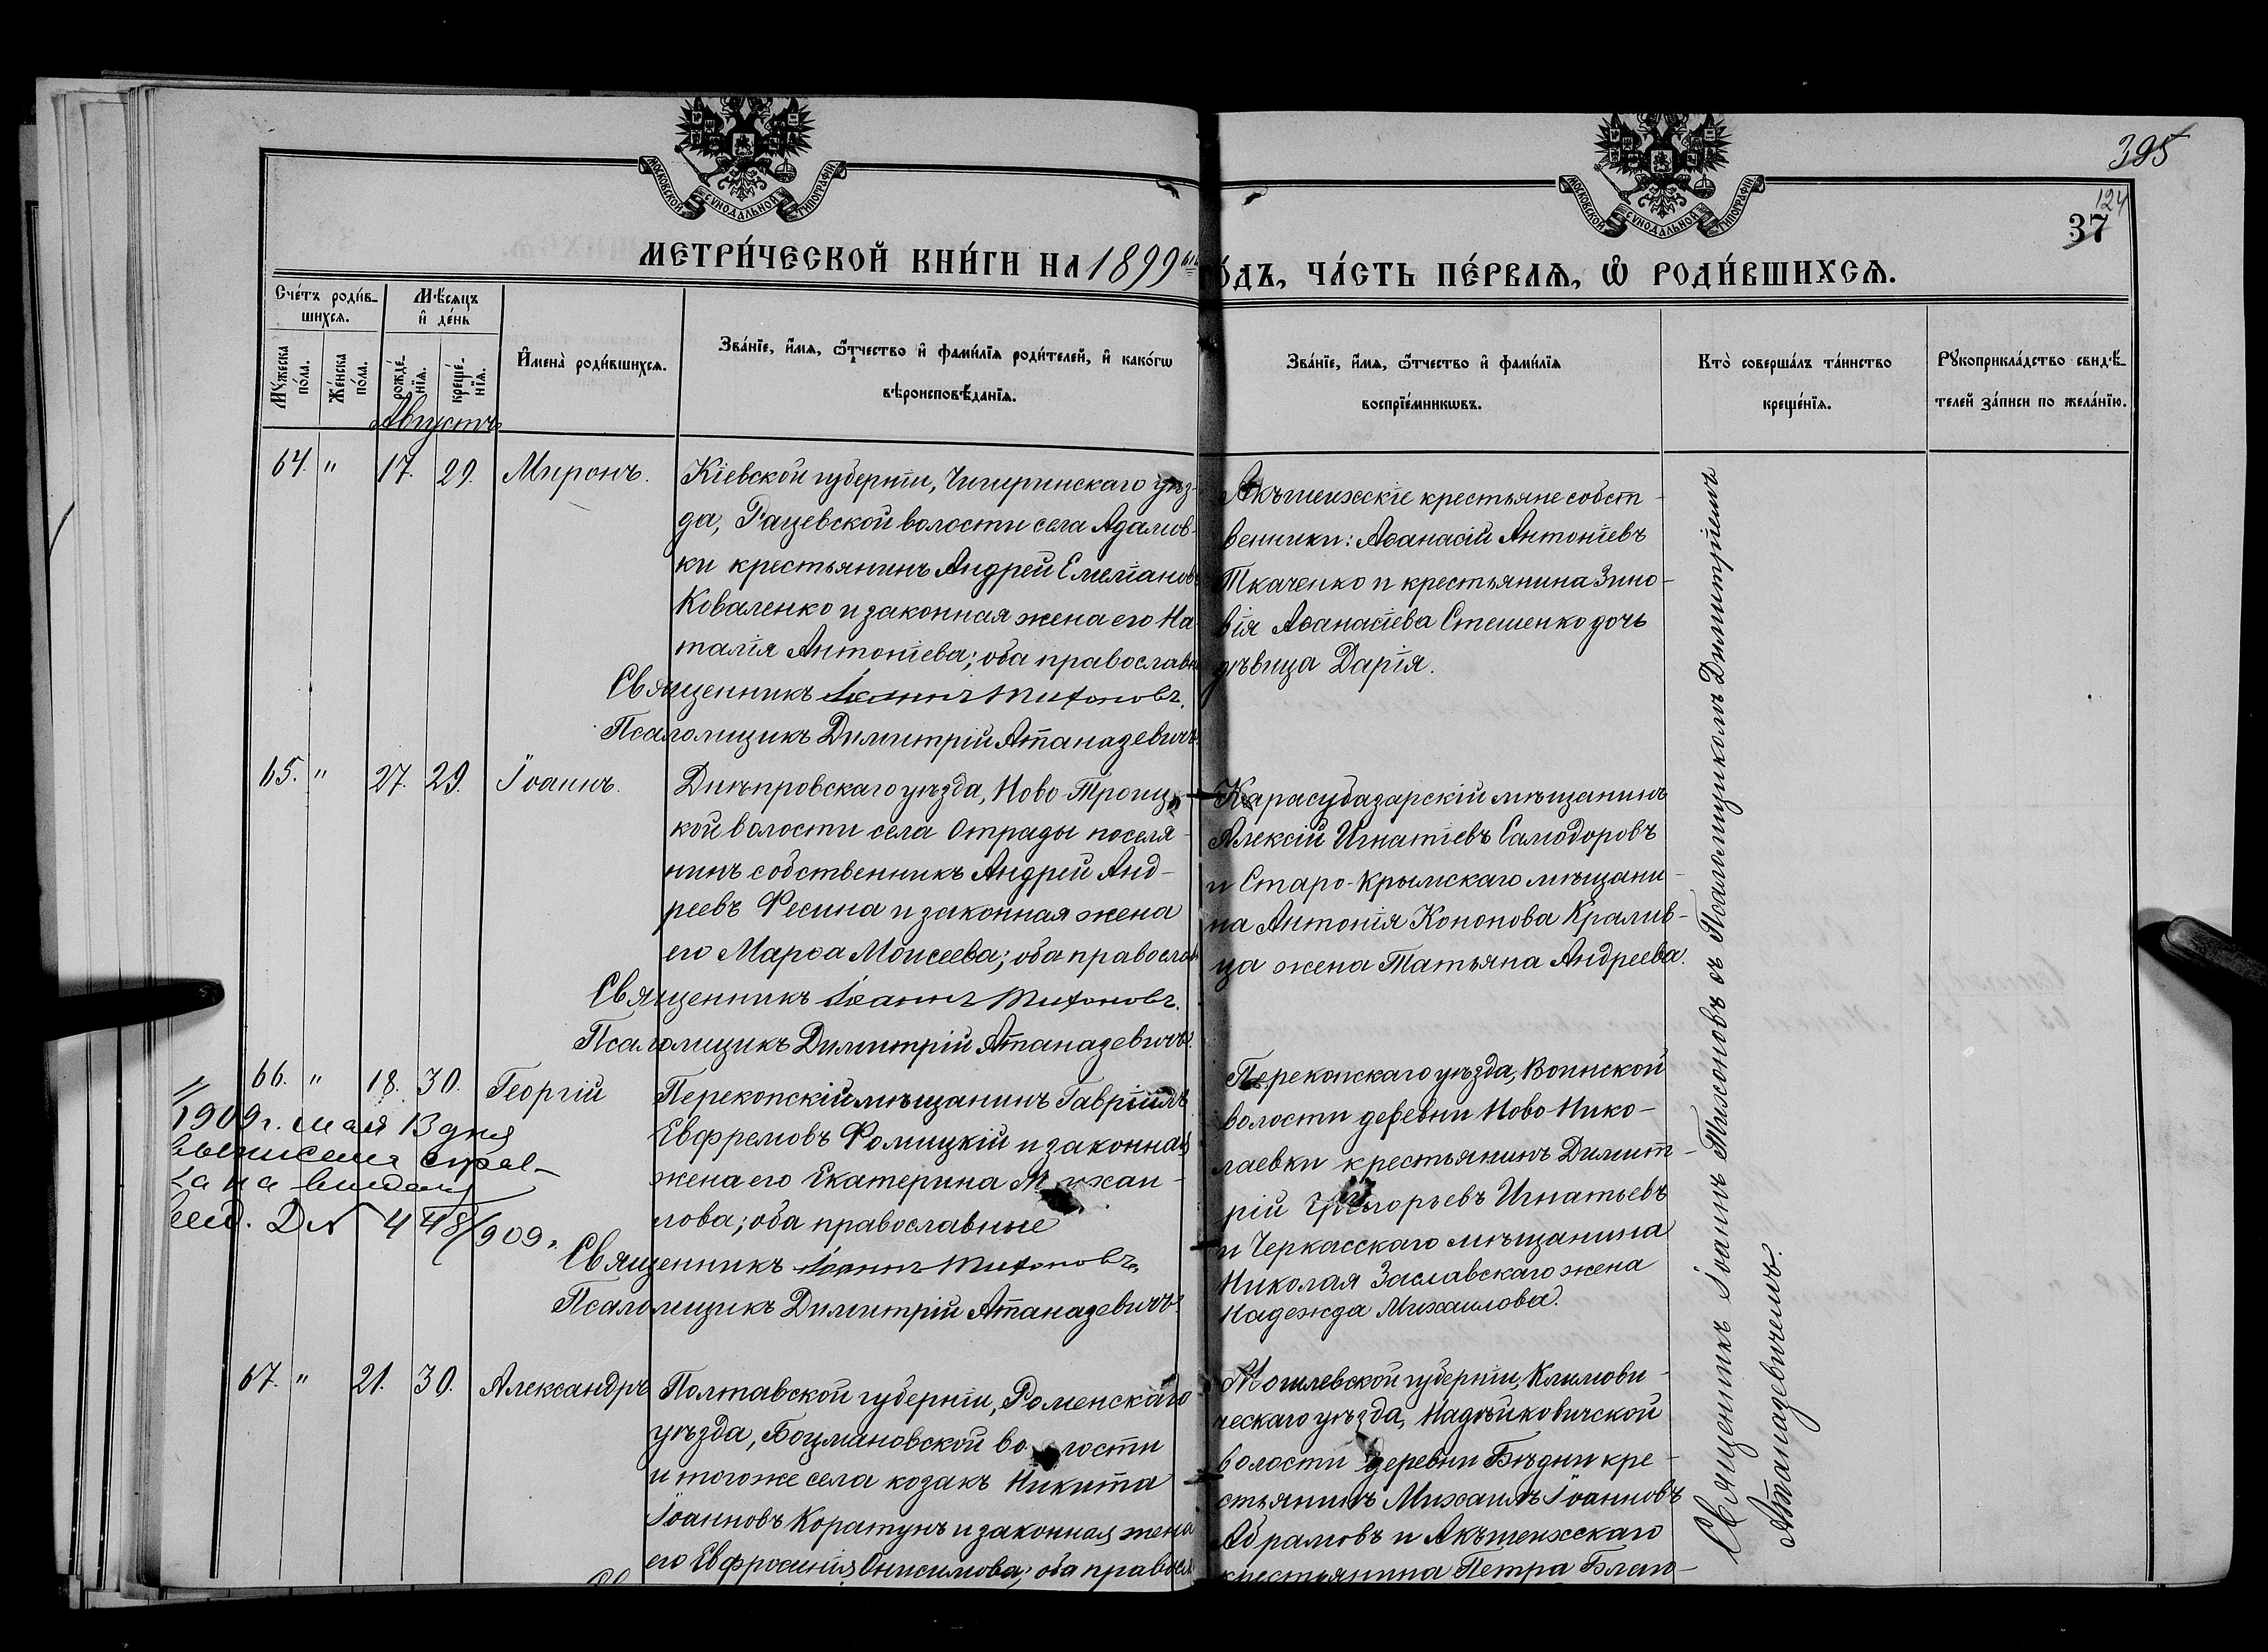 395
124
37
МОСКОВСКОЙ СѴНОДАЛЬНОЙ ТИПОГРАФІИ
МОСКОВСКОЙ СѴНОДАЛЬНОЙ ТИПОГРАФІИ
МЕТРИ́ЧЕСКОЙ КНИ́ГИ НА 1899ый
ГО́ДЪ, ЧА́СТЬ ПЕ́РВАѦ, Ѽ РОДИ́ВШИХСѦ.
Сче́тъ роди́в-
шихсѧ.
Мѣ́сѧцъ
и҆ де́нь
Мꙋ́жеска по́ла.
Же́нска по́ла.
рожде́-нїѧ.
креще́-нїѧ.
И҆мена̀ роди́вшихсѧ.
Зва́нїе, и҆́мѧ, ѻ҆́тчество и҆ фами́лїѧ роди́телей, и҆ како́гѡ
вѣроисповѣ́данїѧ.
Зва́нїе, и҆́мѧ, ѻ҆́тчество и҆ фами́лїѧ
воспрїе́мникѡвъ.
Кто̀ соверша́лъ та́инство
креще́нїѧ.
Рꙋкоприкла́дство свидѣ́-
телей за́писи по жела́нїю.
Августъ
64. " 17. 29. Миронъ.
Кіевской губерніи, Чигиринскаго уѣз-
да, Рацевской волости села Адамов-
ки крестьянинъ Андрей Емеліановъ
Коваленко и законная жена его На-
талія Антоніева; оба православн
Священникъ Іоаннъ Тихоновъ.
Псаломщикъ Димитрій Атаназевичъ.
Акъшеихскіе крестьяне собст-
венники: Аѳанасій Антоніевъ
Ткаченко и крестьянина Зино-
вія Аѳанасіева Стешенко дочь
дѣвица Дарія.
65. " 27. 29. Іоаннъ.
Днѣпровскаго уѣзда, Ново-Троиц-
кой волости села Отрады поселя-
нинъ собственникъ Андрей Анд-
реевъ Фесина и законная жена
его Марѳа Моисеева; оба православ
Священникъ Іоаннъ Тихоновъ.
Псаломщикъ Димитрій Атаназевичъ.
Карасубазарскій мѣщанинъ
Алексій Игнатіевъ Самодоровъ
и Старо-Крымскаго мѣщани-
на Антонія Кононова Кралив-
ца жена Татьяна Андреева.
66. " 18. 30. Георгій
Перекопскій мѣщанинъ Гавріилъ
Евфремовъ Фомицкій и законная
жена его Екатерина Михаи-
лова; оба православные
Священникъ Іоаннъ Тихоновъ.
Псаломщикъ Димитрій Атаназевичъ.
1909 г. мая 13 дня
448/909.
Перекопскаго уѣзда, Воинской
волости деревни Ново-Нико-
лаевки крестьянинъ Димит-
рій Григорьевъ Игнатьевъ
и Черкасскаго мѣщанина
Николая Заславскаго жена
Надежда Михаилова.
67. " 21. 30. Александръ
Полтавской губерніи, Роменскаго
уѣзда, Боцмановской волости
и тогоже села козакъ Никита
Іоанновъ Коратунъ и законная жена
его Евфросинія Онисимова; оба правосл
Могилевской губерніи, Климови-
ческаго уѣзда, Надѣйковичской
волости деревни Бѣдни кре-
стьянинъ Михаилъ Іоанновъ
Абрамовъ и Акъшеихскаго
крестьянина Петра Благо-
Священникъ Іоаннъ Тихоновъ съ Псаломщикомъ Димитріемъ
Атаназевичемъ.